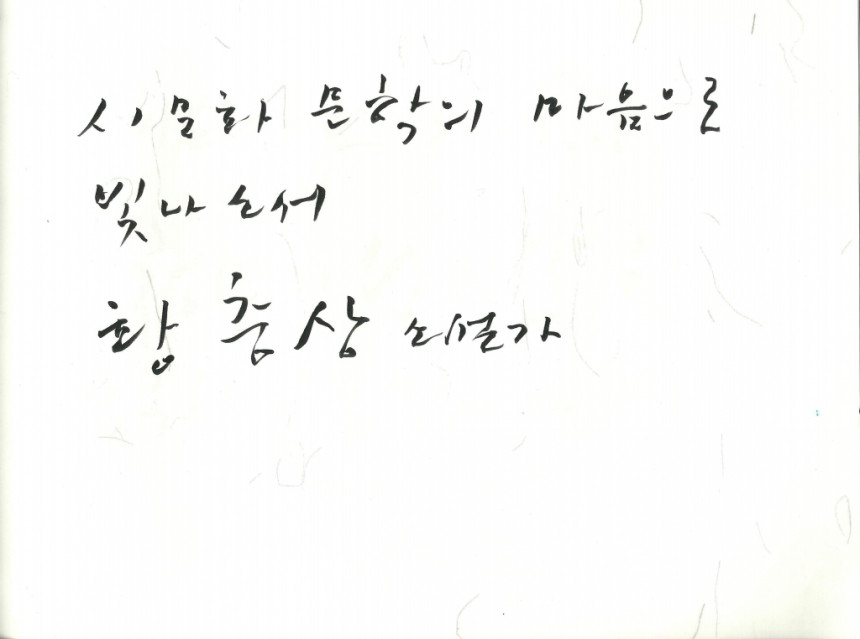 시문화 문학의 마음으로
빛나소서
황충상 소설가